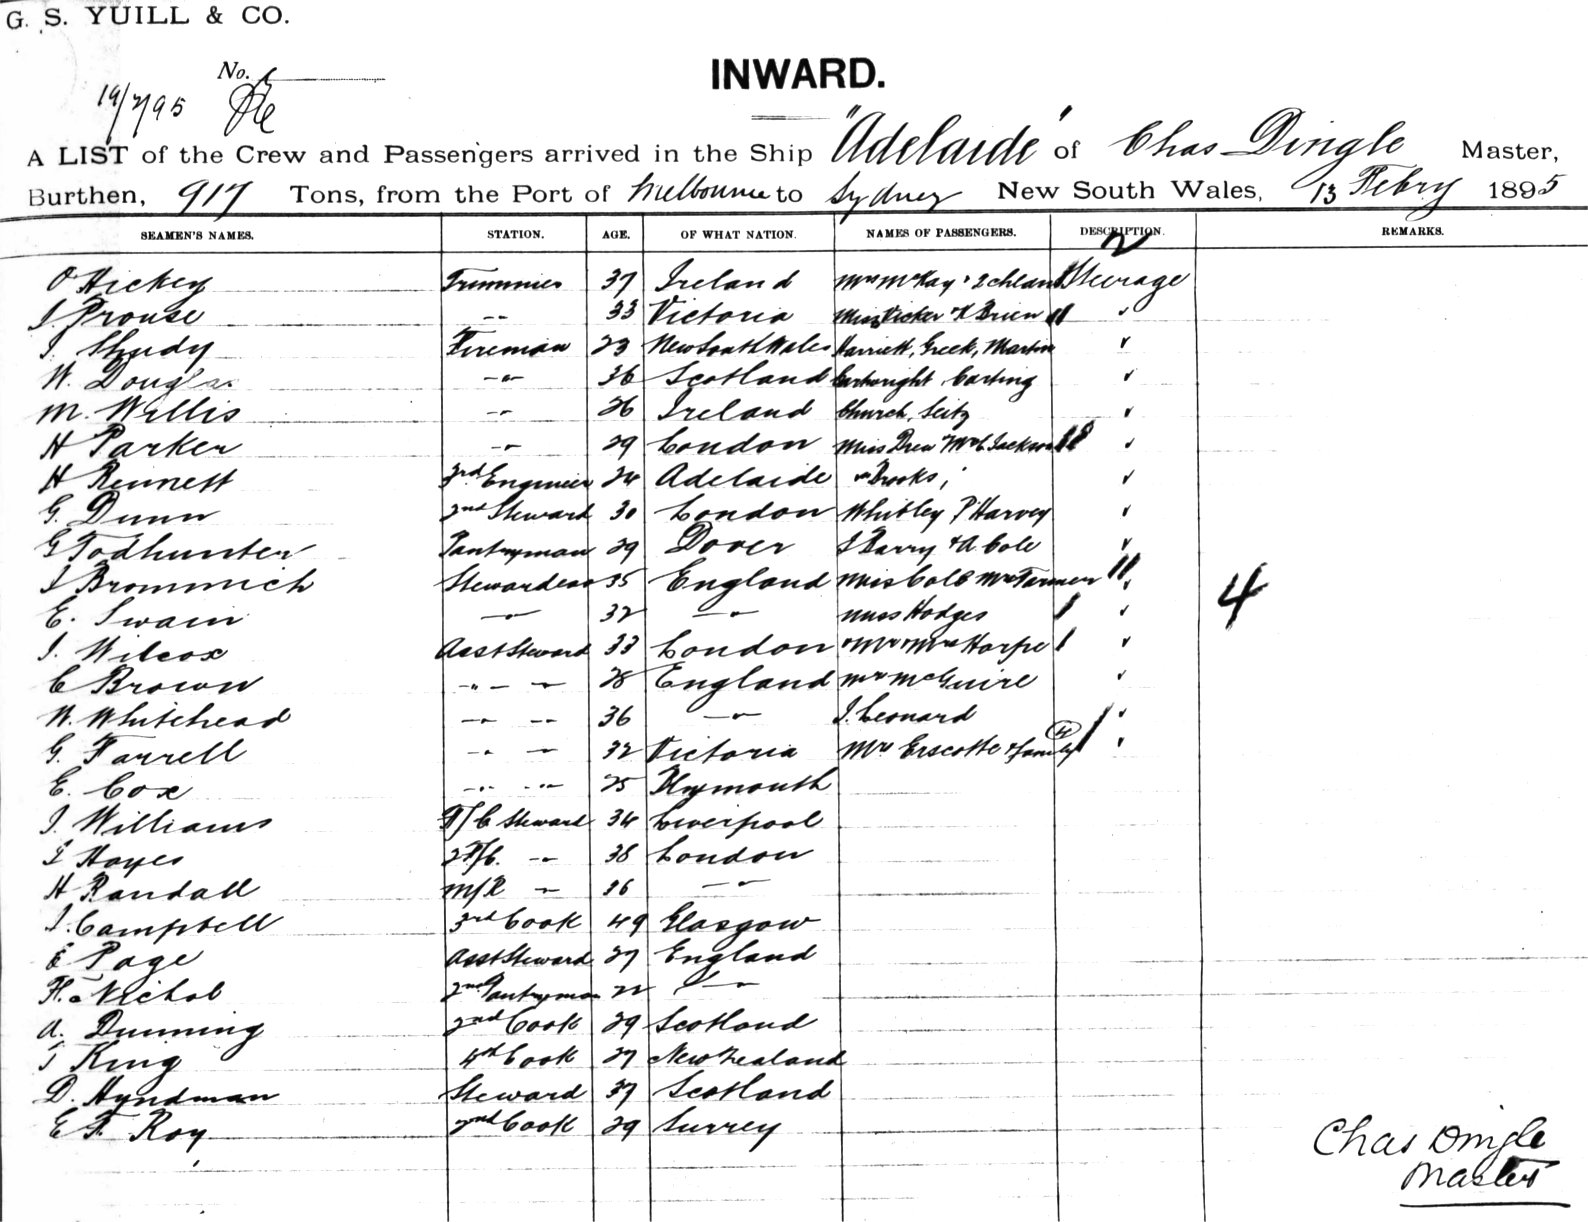 G. S. YUILL & CO.
No.
19/2/95
INWARD.
A LIST of the Crew and Passengers arrived in the Ship "Adelaide" of Chas Dingle Master,
Burthen, 917 Tons, from the Port of Melbourne to Sydney New South Wales, 13 Febry 1895
SEAMEN'S NAMES. STATION. AGE. OF WHAT NATION. NAMES OF PASSENGERS. DESCRIPTION. REMARKS.
2
O Hickey Trimmer 37 Ireland Mrs McKay & 2 children Steerage
J. Prouse -"- 33 Victoria Miss Vicker & O'Brien "
J. Study Fireman 23 New South Wales Harriett, Greek, Martin "
W. Douglas -"- 36 Scotland Cartwright Carting "
M. Willis -"- 26 Ireland Church, Seitz "
H Parker -"- 29 London Miss Drew Mrs C Jackson "
H Rennett 3rd Engineer 24 Adelaide " Brooks, "
G. Dunn 2nd Steward 30 London Whitley P Harvey "
G Todhunter Pantryman 29 Dover J Barry & A. Cole "
J Brommich Stewardess 35 England Miss Cole Mrs Farmer "
E. Swain -"- 32 -"- Miss Hodges "
4
J. Wilcox Asst Steward 33 London Mr Mrs Harpe "
C Brown -"- -"- 28 England Mr McGuire "
W. Whitehead -"- -"- 36 -"- J. Leonard "
G. Farrell -"- -"- 32 Victoria Mrs Erscotte & family (4) "
E. Cox -"- -"- 25 Plymouth
J. Williams F/C Steward 34 Liverpool
J Hayes 2F/C. -"- 38 London
H Randall M/R -"- 26 -"-
J. Campbell 3rd Cook 49 Glasgow
E Page Asst Steward 27 England
H. Nichol 2nd Pantryman 22 -"-
A. Dunning 2nd Cook 29 Scotland
T King 4th Cook 27 New Zealand
D. Hyndman Steward 37 Scotland
E F. Roy 2nd Cook 29 Surrey
Chas Dingle
Master